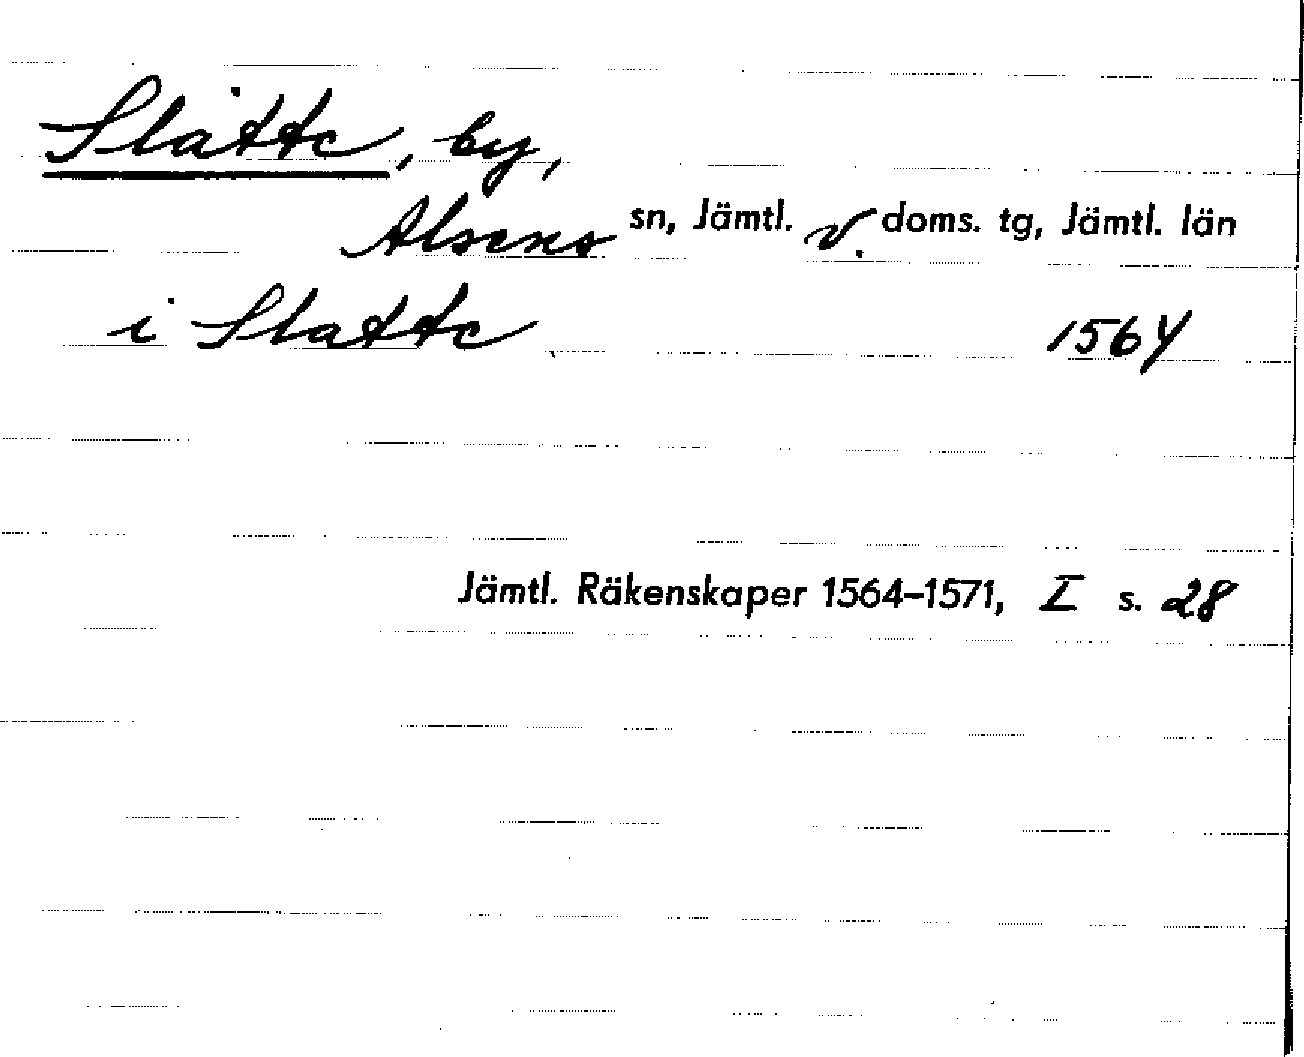 Slätte, by,
Alsens sn, Jämtl. v. doms. tg, Jämtl. län
i Slatte 1564
Jämtl. Räkenskaper 1564–1571, I s. 28